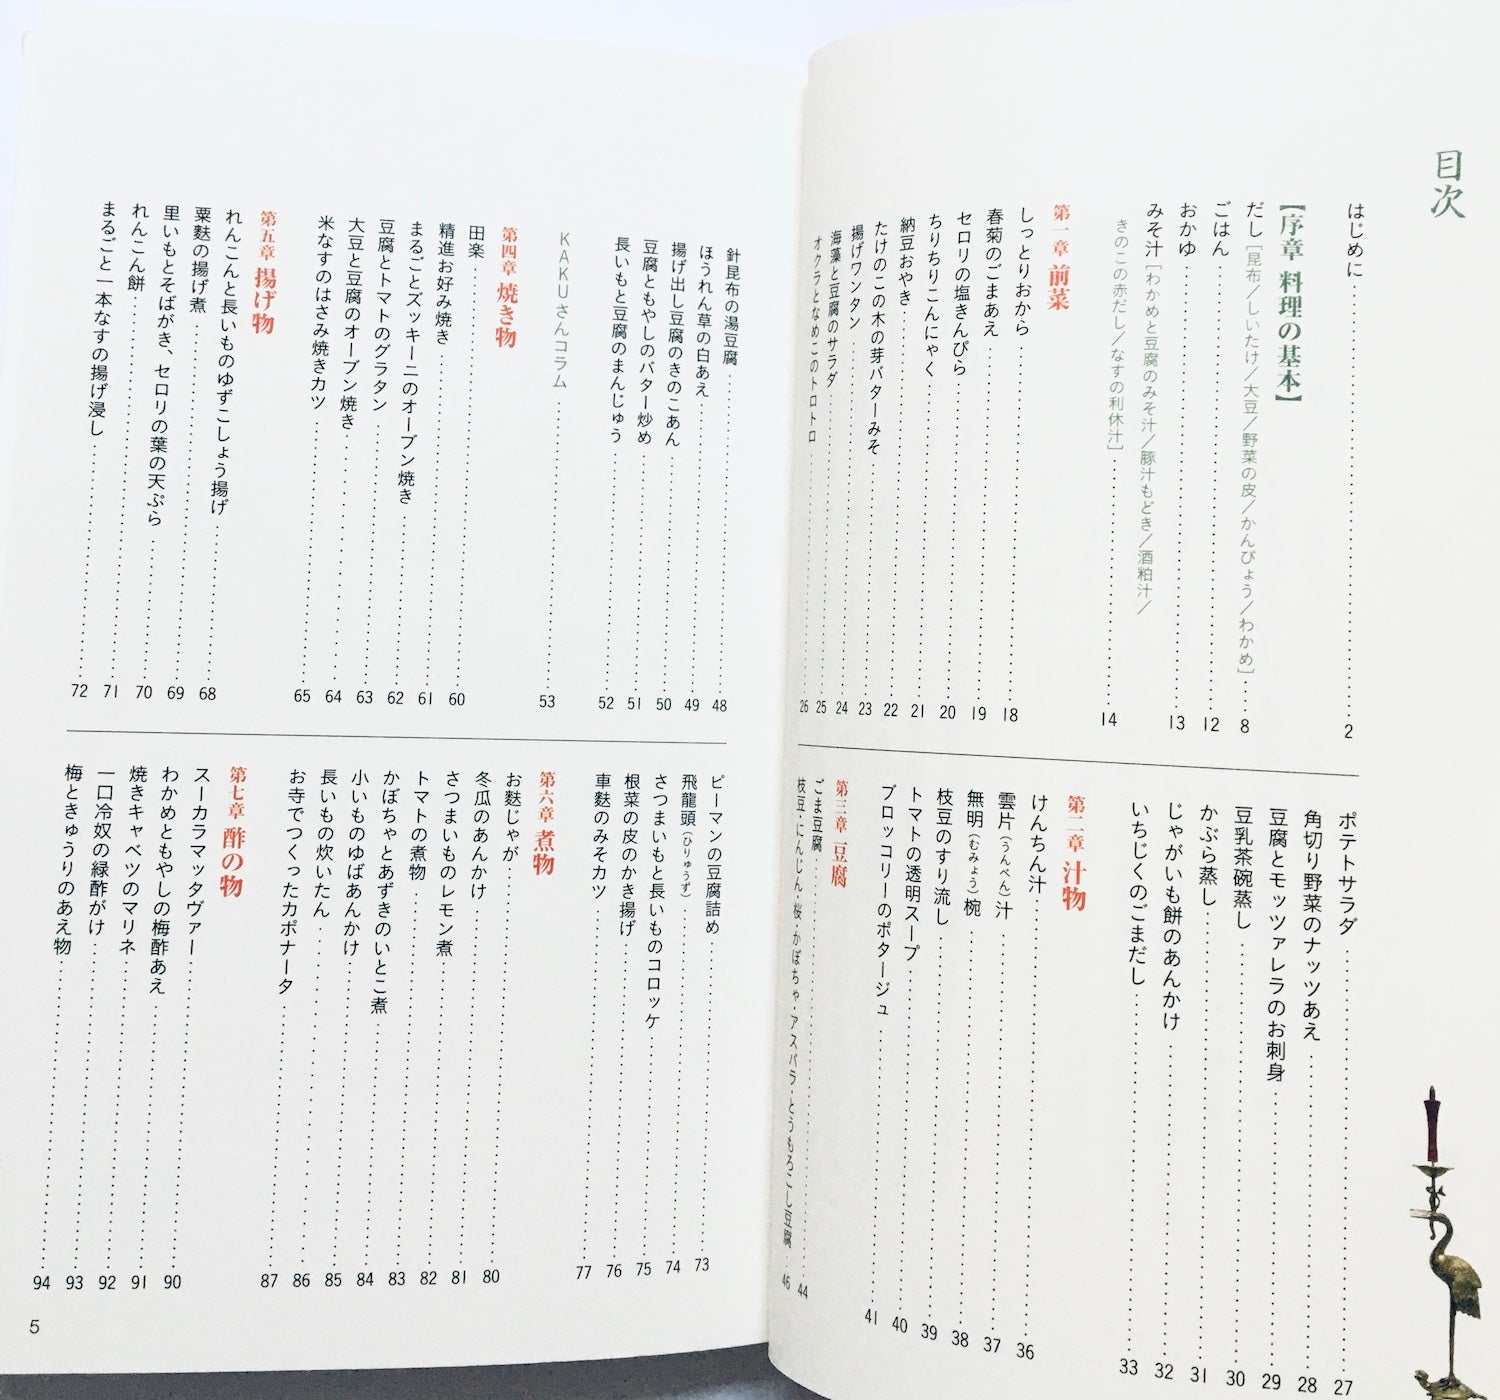 目次
はじめに……2
【序章 料理の基本】
だし［昆布／しいたけ／大豆／野菜の皮／かんぴょう／わかめ］……8
ごはん……12
おかゆ……13
みそ汁［わかめと豆腐のみそ汁／豚汁もどき／酒粕汁／
きのこの赤だし／なすの利休汁］……14
第一章 前菜
しっとりおから……18
春菊のごまあえ……19
セロリの塩きんぴら……20
ちりちりこんにゃく……21
納豆おやき……22
たけのこの木の芽バターみそ……23
揚げワンタン……24
海藻と豆腐のサラダ……25
オクラとなめこのトロトロ……26
ポテトサラダ……27
角切り野菜のナッツあえ……28
豆腐とモッツァレラのお刺身……29
豆乳茶碗蒸し……30
かぶら蒸し……31
じゃがいも餅のあんかけ……32
いちじくのごまだし……33
第二章 汁物
けんちん汁……36
雲片（うんぺん）汁……37
無明（むみょう）椀……38
枝豆のすり流し……39
トマトの透明スープ……40
ブロッコリーのポタージュ……41
第三章 豆腐
ごま豆腐……44
枝豆・にんじん・桜・かぼちゃ・アスパラ・とうもろこし豆腐……46
針昆布の湯豆腐……48
ほうれん草の白あえ……49
揚げ出し豆腐のきのこあん……50
豆腐ともやしのバター炒め……51
長いもと豆腐のまんじゅう……52
KAKUさんコラム……53
第四章 焼き物
田楽……60
精進お好み焼き……61
まるごとズッキーニのオーブン焼き……62
豆腐とトマトのグラタン……63
大豆と豆腐のオーブン焼き……64
米なすのはさみ焼きカツ……65
第五章 揚げ物
れんこんと長いものゆずこしょう揚げ……68
粟麩の揚げ煮……69
里いもとそばがき、セロリの葉の天ぷら……70
れんこん餅……71
まるごと一本なすの揚げ浸し……72
ピーマンの豆腐詰め……73
飛龍頭（ひりゅうず）……74
さつまいもと長いものコロッケ……75
根菜の皮のかき揚げ……76
車麩のみそカツ……77
第六章 煮物
お麩じゃが……80
冬瓜のあんかけ……81
さつまいものレモン煮……82
トマトの煮物……83
かぼちゃとあずきのいとこ煮……84
小いものゆばあんかけ……85
長いもの炊いたん……86
お寺でつくったカポナータ……87
第七章 酢の物
スーカラマッタヴァー……90
わかめともやしの梅酢あえ……91
焼きキャベツのマリネ……92
一口冷奴の緑酢がけ……93
梅ときゅうりのあえ物……94
5